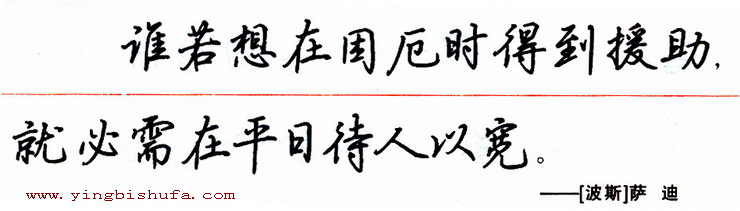 谁若想在困厄时得到援助,
就必需在平日待人以宽。
——[波斯]萨 迪
www.yingbishufa.com